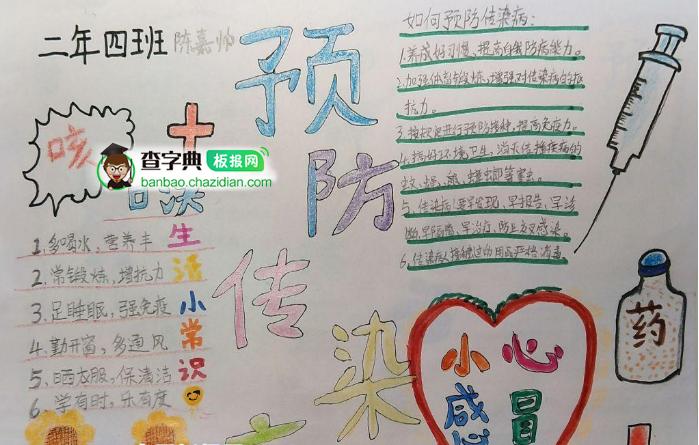 二年四班 陈嘉帅
预防传染
咳
查字典 板报网
banbao.chazidian.com
生活小常识
1、多喝水,营养丰
2、常锻炼,增抗力
3、足睡眠,强免疫
4、勤开窗,多通风
5、晒衣服,保清洁
6、学有时,乐有度
如何预防传染病:
1.养成好习惯,提高自我防病能力。
2.加强体育锻炼,增强对传染病的抵
抗力。
3、按规定进行预防接种,提高免疫力。
4.搞好环境卫生,消灭传播疾病的
蚊、蝇、鼠、蟑螂等害虫。
5、传染病人要早发现,早报告,早诊
断,早隔离,早治疗,防止交叉感染。
6、传染病人接触过的用品严格消毒
药
小心
感冒